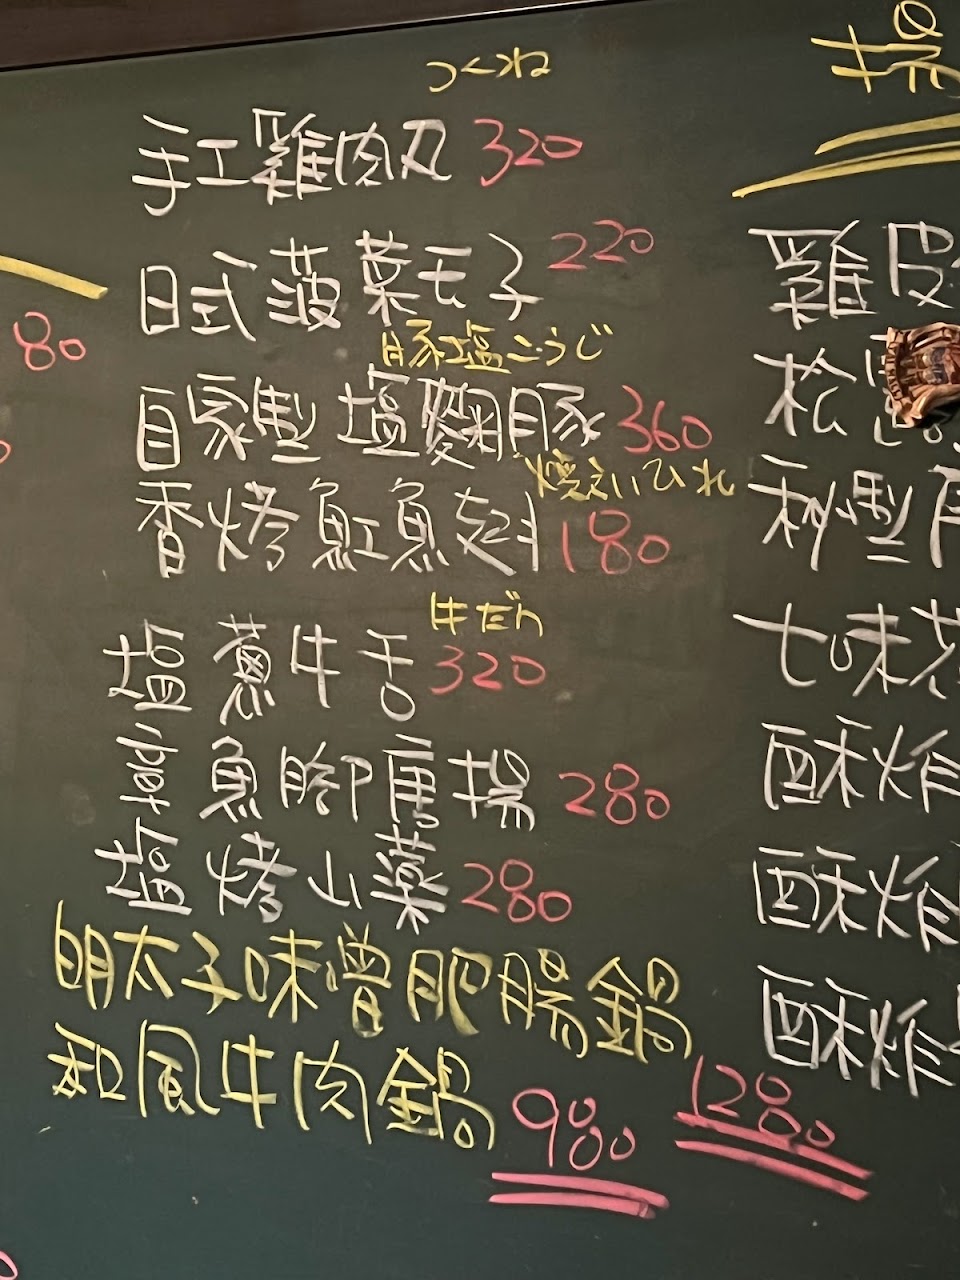 つくね
手工雞肉丸 320
日式菠菜玉子 220
豚塩こうじ
自家製塩麴豚 360
焼えいひれ
香烤魟魚翅 180
牛だん
塩蔥牛舌 320
章魚腳唐揚 280
塩烤山藥 280
明太子味噌肥腸鍋
1280
和風牛肉鍋
980
80
揚
雞皮
松
秘製
七味
酥炸
酥炸
酥炸